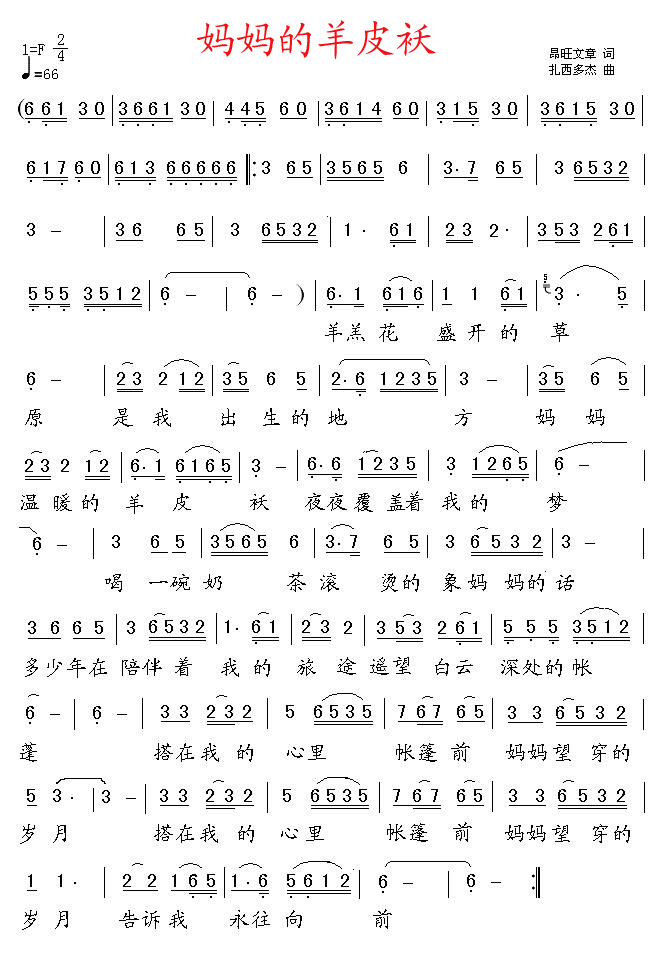 妈妈的羊皮袄
1=F 2/4
♩=66
昂旺文章 词
扎西多杰 曲
(6 6 1 3 0 | 3 6 6 1 3 0 | 4 4 5 6 0 | 3 6 1 4 6 0 | 3 1 5 3 0 | 3 6 1 5 3 0 |
6 1 7 6 0 | 6 1 3 6 6 6 6 6 |: 3 6 5 | 3 5 6 5 6 | 3· 7 6 5 | 3 6 5 3 2 |
3 – | 3 6 6 5 | 3 6 5 3 2 | 1 · 6 1 | 2 3 2 · | 3 5 3 2 6 1 |
5 5 5 3 5 1 2 | 6 – | 6 – ) | 6· 1 6 1 6 | 1 1 6 1 | 5 3 · 5 |
羊羔花 盛开的草
6 – | 2 3 2 1 2 | 3 5 6 5 | 2· 6 1 2 3 5 | 3 – | 3 5 6 5 |
原 是我 出生的地 方 妈妈
2 3 2 1 2 | 6· 1 6 1 6 5 | 3 – | 6· 6 1 2 3 5 | 3 1 2 6 5 | 6 –
温暖的羊皮 袄 夜夜覆盖着我的 梦
6 – | 3 6 5 | 3 5 6 5 6 | 3· 7 6 5 | 3 6 5 3 2 | 3 – |
喝一碗奶 茶滚 烫的象妈妈的话
3 6 6 5 | 3 6 5 3 2 | 1· 6 1 | 2 3 2 | 3 5 3 2 6 1 | 5 5 5 3 5 1 2 |
多少年在陪伴着 我的 旅途遥望白云 深处的帐
6 – | 6 – | 3 3 2 3 2 | 5 6 5 3 5 | 7 6 7 6 5 | 3 3 6 5 3 5 |
蓬 搭在我的 心里 帐篷前 妈妈望穿的
5 3 · | 3 – | 3 3 2 3 2 | 5 6 5 3 5 | 7 6 7 6 5 | 3 3 6 5 3 5 |
岁月 搭在我的 心里 帐篷前 妈妈望穿的
1 1 · | 2 2 1 6 5 | 1 · 6 5 6 1 2 | 6 – | 6 – :|
岁月 告诉我 永往向 前